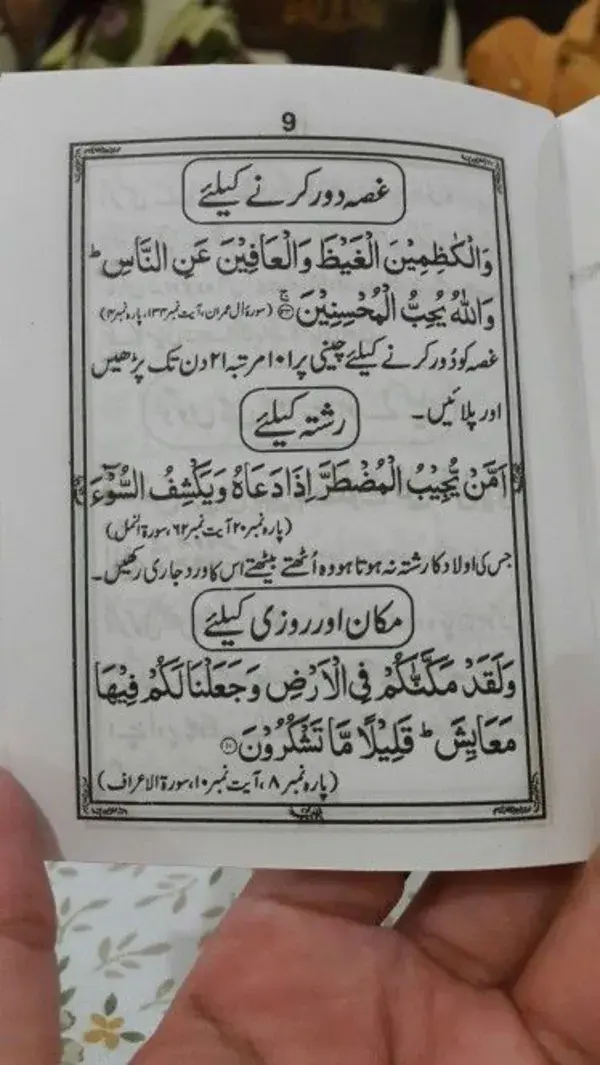 9
غصہ دور کرنے کیلئے
وَالْكٰظِمِيْنَ الْغَيْظَ وَالْعَافِيْنَ عَنِ النَّاسِ ؕ
وَاللّٰهُ يُحِبُّ الْمُحْسِنِيْنَ ۚ (سورۃ آل عمران، آیت نمبر ۱۳۴، پارہ نمبر ۴)
غصہ کو دُور کرنے کیلئے چینی پر ۱۰۱ مرتبہ ۲۱ دن تک پڑھیں
اور پلائیں۔
رشتہ کیلئے
اَمَّنْ يُّجِيْبُ الْمُضْطَرَّ اِذَا دَعَاهُ وَيَكْشِفُ السُّوْٓءَ
(پارہ نمبر ۲۰ آیت نمبر ۶۲، سورۃ النمل)
جس کی اولاد کا رشتہ نہ ہوتا ہو وہ اُٹھتے بیٹھتے اس کا ورد جاری رکھیں۔
مکان اور روزی کیلئے
وَلَقَدْ مَكَّنّٰكُمْ فِي الْاَرْضِ وَجَعَلْنَا لَكُمْ فِيْهَا
مَعَايِشَ ؕ قَلِيْلًا مَّا تَشْكُرُوْنَ ۝۱۰
(پارہ نمبر ۸، آیت نمبر ۱۰، سورۃ الاعراف)